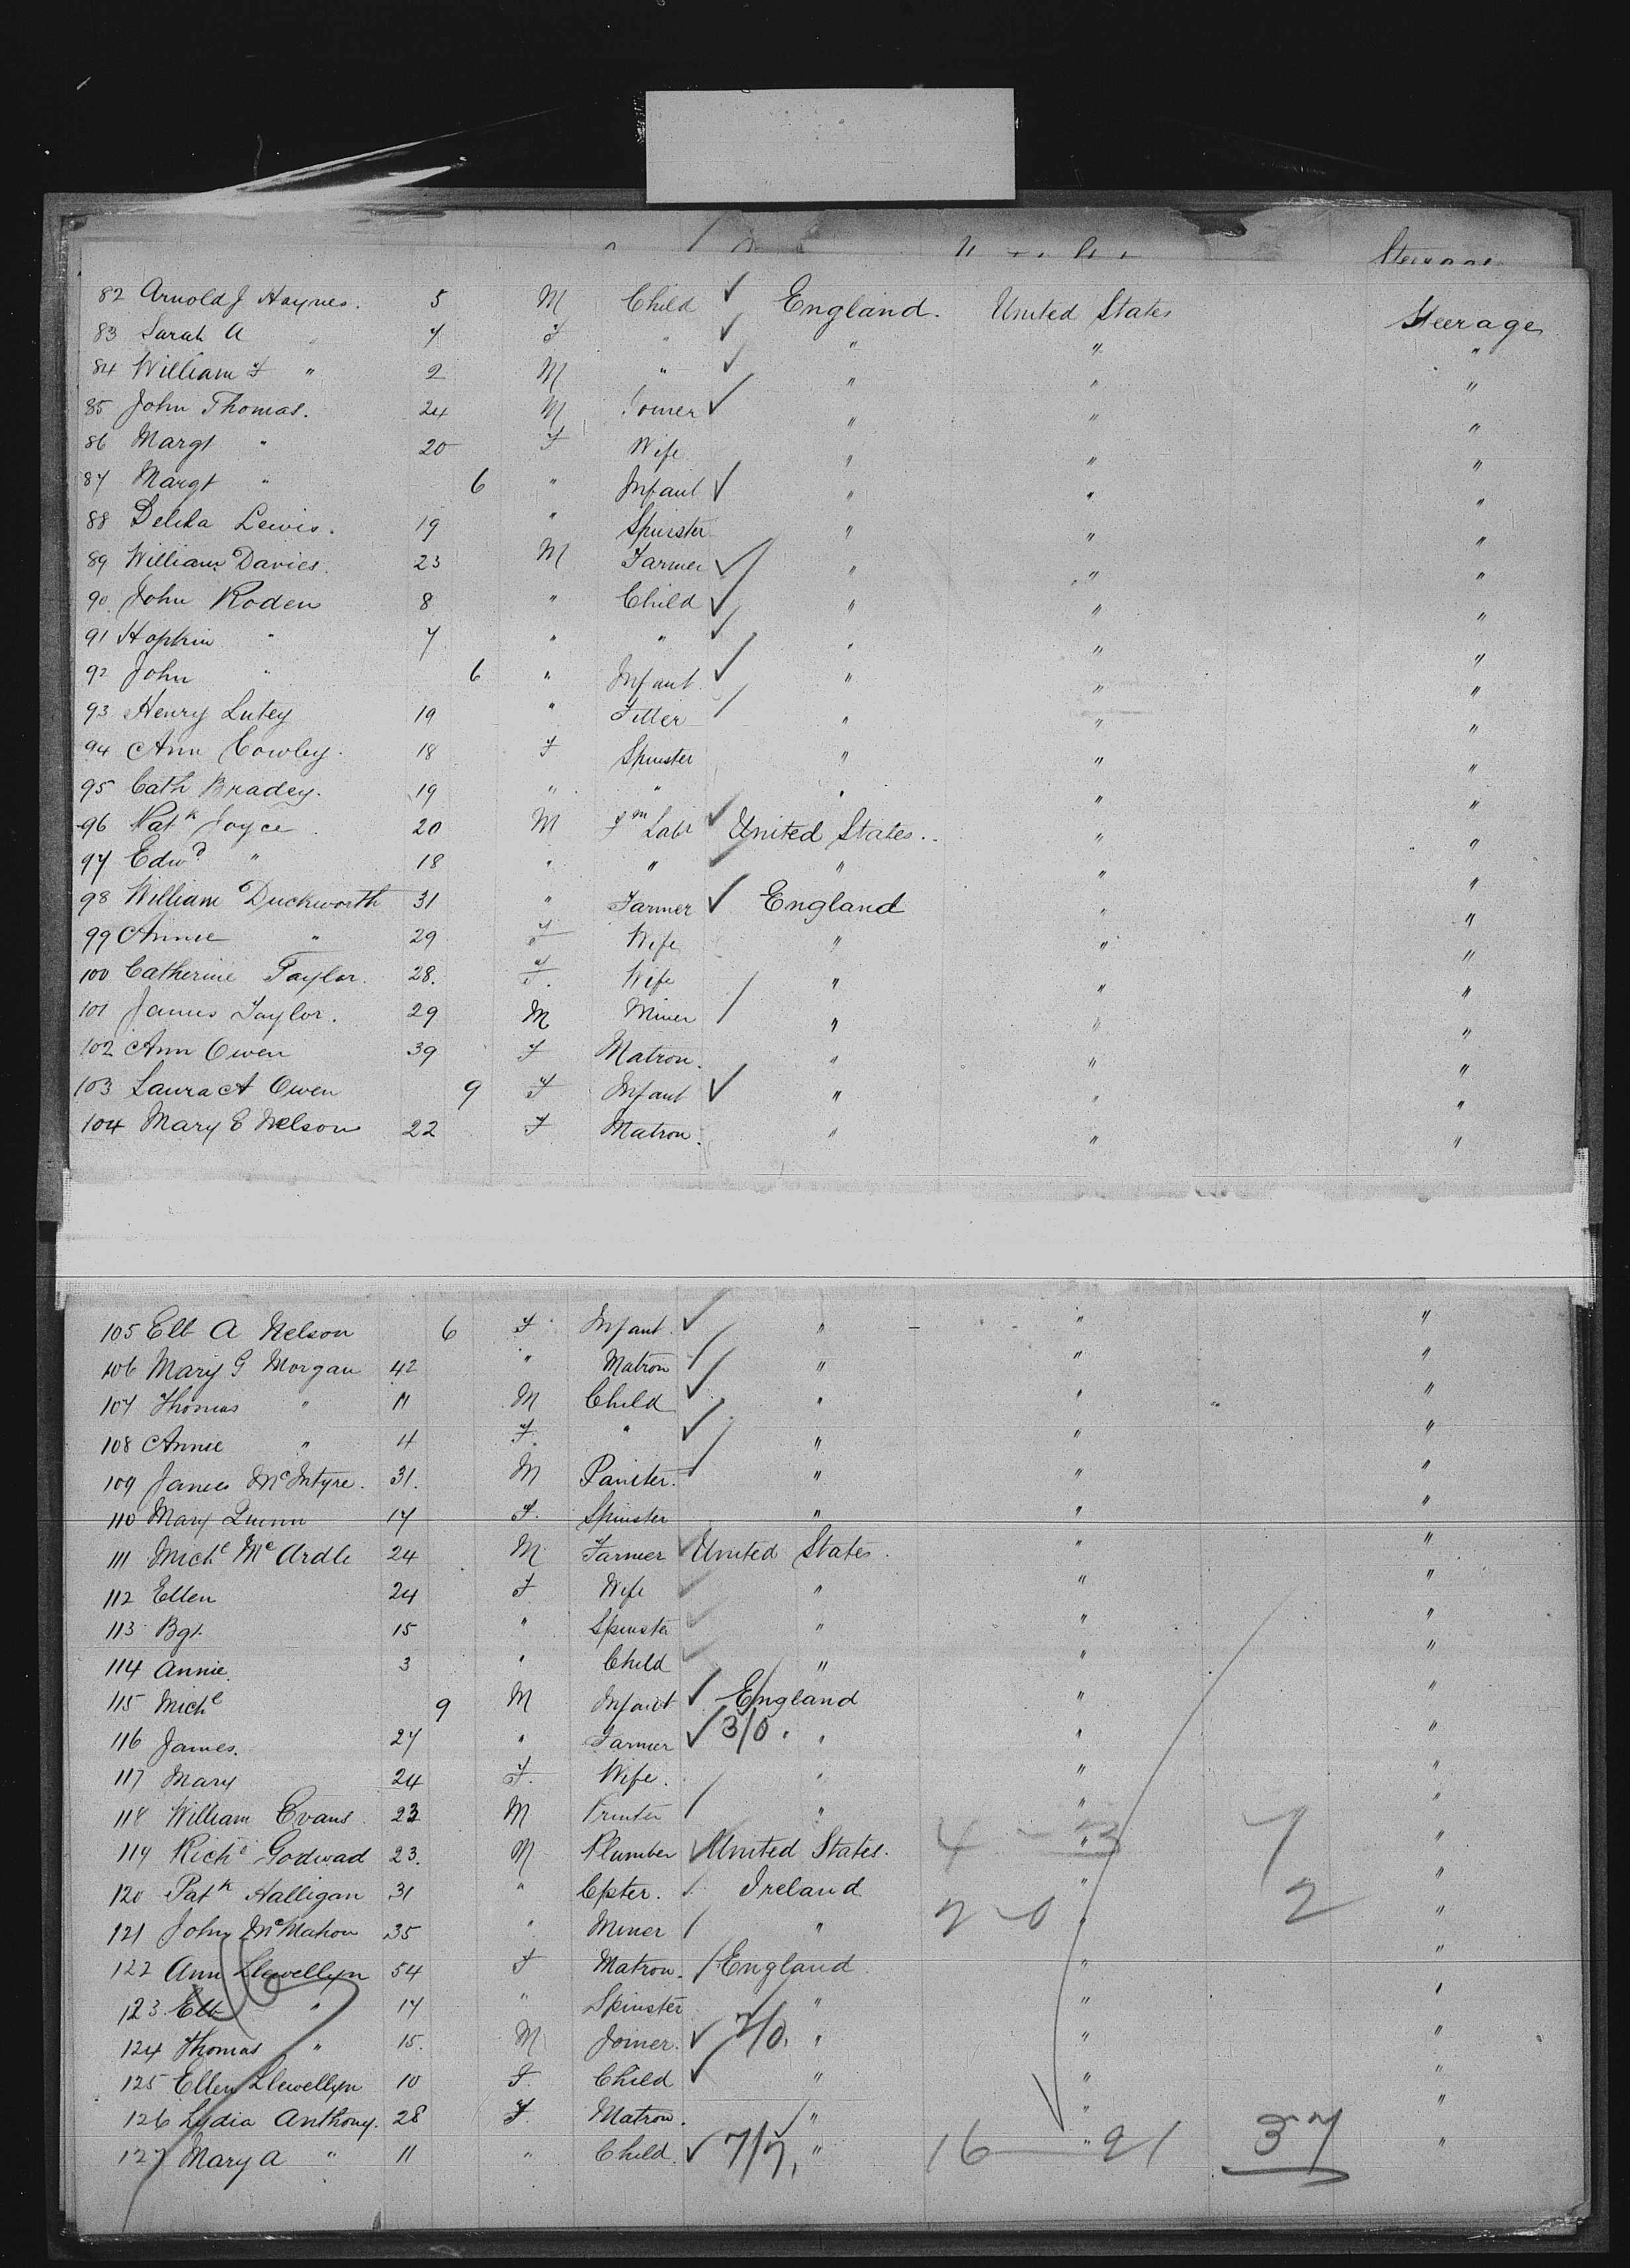 Steerage
82 Arnold J Haynes. 5 M Child ✓ England. United States Steerage
83 Sarah A " 7 F " ✓ " " "
84 William F " 2 M " ✓ " " "
85 John Thomas. 24 M Joiner ✓ " " "
86 Margt " 20 F Wife " " "
87 Margt " 6 " Infant ✓ " " "
88 Delila Lewis. 19 " Spinster " " "
89 William Davies. 23 M Farmer ✓ " " "
90 John Roden 8 " Child ✓ " " "
91 Hopkin " 7 " " ✓ " " "
92 John " 6 " Infant ✓ " " "
93 Henry Lutey 19 " Fitter / " " "
94 Ann Cowley. 18 F Spinster " " "
95 Cath Bradey. 19 " " " " "
96 Patk Joyce. 20 M Fm Labr ✓ United States. " "
97 Edwd " 18 " " ✓ " " "
98 William Duckworth 31 " Farmer ✓ England " "
99 Annie " 29 F Wife " " "
100 Catherine Taylor. 28. F. Wife " " "
101 James Taylor. 29 M Miner / " " "
102 Ann Owen 39 F Matron. " " "
103 Laura A Owen 9 F Infant ✓ " " "
104 Mary E Nelson 22 F Matron. " " "
105 Elb A Nelson 6 F Infant. ✓ " " "
106 Mary G Morgan 42 " Matron / " " "
107 Thomas " 11 M Child ✓ " " "
108 Annie " 4 F. " ✓ " " "
109 James McIntyre. 31. M Painter. / " " "
110 Mary Quinn 17 F. Spinster " " "
111 Michl McArdle 24 M Farmer ✓ United States. " "
112 Ellen 24 F Wife ✓ " " "
113 Bgt. 15 " Spinster ✓ " " "
114 Annie. 3 " Child ✓ " " "
115 Michl 9 M Infant ✓ England " "
116 James. 27 " Farmer ✓ 3/0. " " "
117 Mary 24 F. Wife. " " "
118 William Evans 23 M Printer / " " "
119 Richd Godwad 23. M Plumber ✓ United States. 4 - 3 " 7 "
120 Patk Halligan 31 " Cpster. / Ireland " "
121 John McMahon 35 " Miner / " 2-0 " 2 "
122 Ann Llewellyn 54 F Matron. / England " "
123 Elb " 17 " Spinster " " "
124 Thomas " 15. M Joiner. ✓ 2/0. " " "
125 Ellen Llewellyn 10 F. Child ✓ " " "
126 Lydia Anthony. 28 F. Matron. " " "
127 Mary A " 11 " Child. ✓ 7/7, " 16 — 21 " 37 "